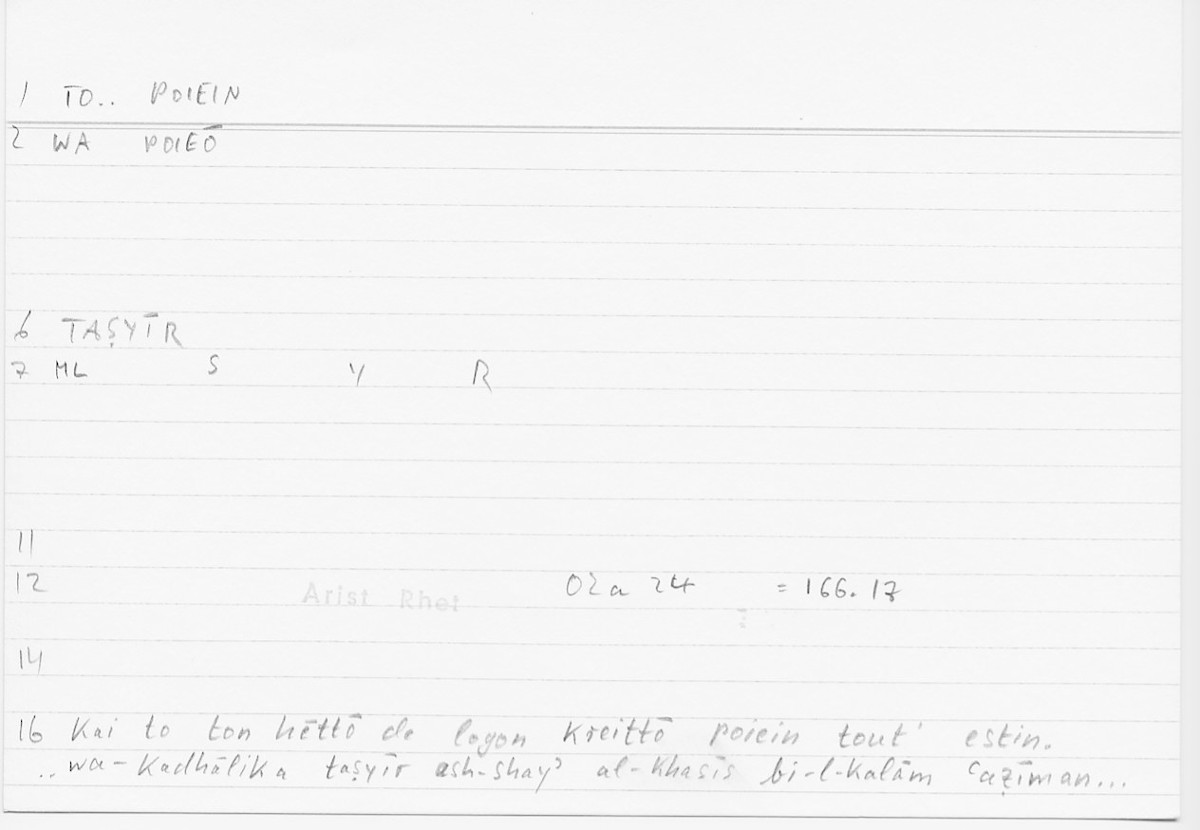 1 TO.. POIEIN
2 WA POIEŌ
6 TAṢYĪR
7 ML S Y R
11
12 Arist Rhet 02a 24 = 166.17
14
16 Kai to ton hēttō de logon kreittō poiein tout' estin.
..wa-kadhālika taṣyīr ash-shayʾ al-khasīs bi-l-kalām ʿaẓīman...